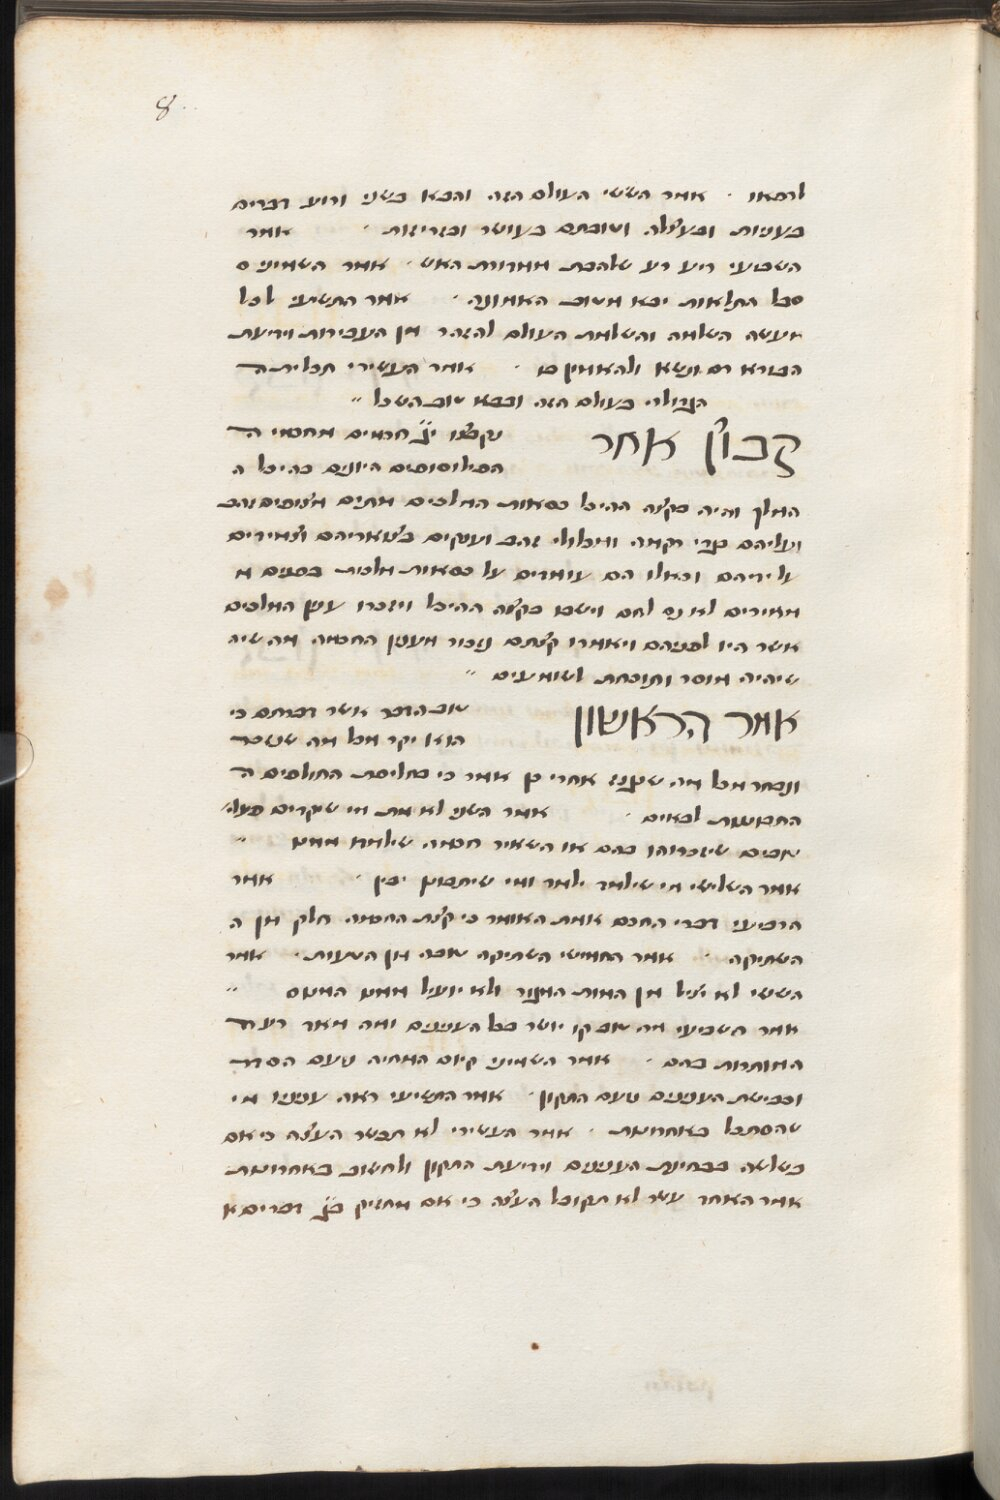 8
לרסאו · אמר הששי העולם הזה והבא בשני ורוע דברים
בעניות ובעצלה ושובתם בעושר ובזריזות · אמר
השביעי ריע רע שלהבת מחרות האש · אמר השמיני ס
סבל התלאות יבא משוב האמונה · אמר התשיעי לכל
מעשה השלמה והשלמת העולם להזהר מן העבירות וידיעת
הבורא רם ונשא ולהאמין בו · אמר העשירי תכלית ה
הגדולה בעולם הזה ובבא טוב השכל ״
קבוץ אחר
נקבצו י״ג חכמים מחכמי ה
הפילוסופים היונים בהיכל ה
המלך והיה בקצה ההיכל כסאות המלכים מתים מצופים זהב
ועליהם בגדי רקמה ומכלולי זהב וענקים בצואריהם וצמידים
על ידיהם וכאלו הם עומדים על כסאות מלכות בפנים מ
מאירים לא נס לחם וישבו בקצה ההיכל ויזכרו ענין המלכים
אשר היו לפניהם ויאמרו קצתם נזכור מענין החכמה מה שיה
שיהיה מוסר ותוכחת לשומעים ״
אמר הראשון
טוב הדבר אשר דברתם כי
הוא יקר מכל מה שנשכר
ונבחר מכל מה שנקנה אחרי כן אמר כי בחליפת החולפים ה
התבוננות לבאים · אמר השני לא מת מי שיקרים פעל
טובים שיזכרוהו בהם או השאיר חכמה שילמדו ממנו ״
אמר השלישי מי שילמד ילמד ומי שיתבונן יבין · אמר
הרביעי דברי החכם אמת האומר כי קצת החכמה חלק מן ה
השתיקה · אמר החמישי השתיקה טובה מן הטעות · אמר
הששי לא יציל מן המות המגור ולא יועיל ממנו המנוס ״
אמר השביעי מה טוב קו יושר בכל הענינים ומה מאד רעה
המותרות בהם · אמר השמיני קיום המחיה טעם הסדר
וכבישת הענינים טעם התקון · אמר התשיעי ראה עניניו מי
שהסתכל באחרונות · אמר העשירי לא תכשר העצה כי אם
בשלשה בבחינת הענינים וידיעת התקון ולחשוב באחרונות
אמר האחד עשר לא תקובל העצה כי אם מחזיק בג׳ דברים א